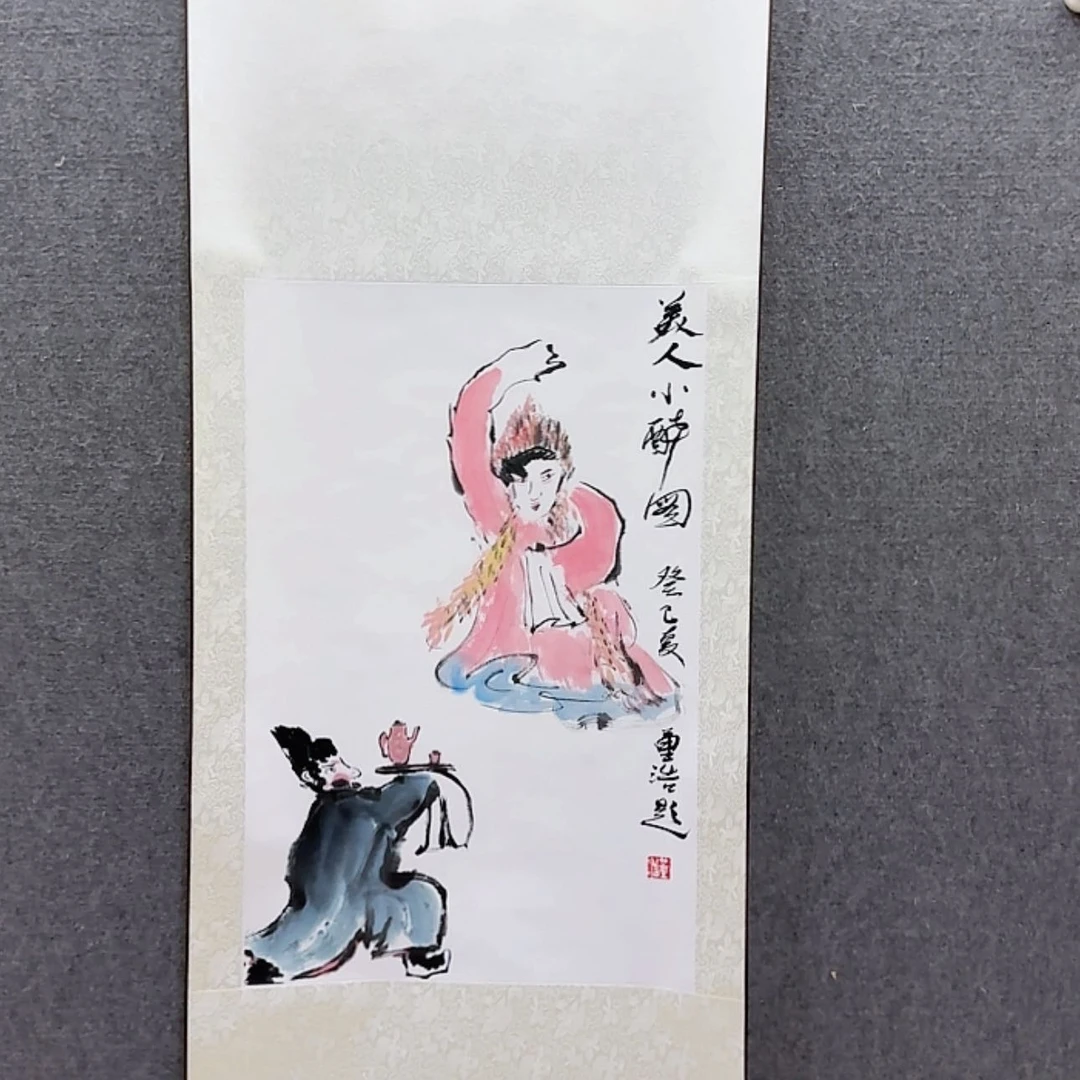 美人小醉图 癸巳夏 董浩题